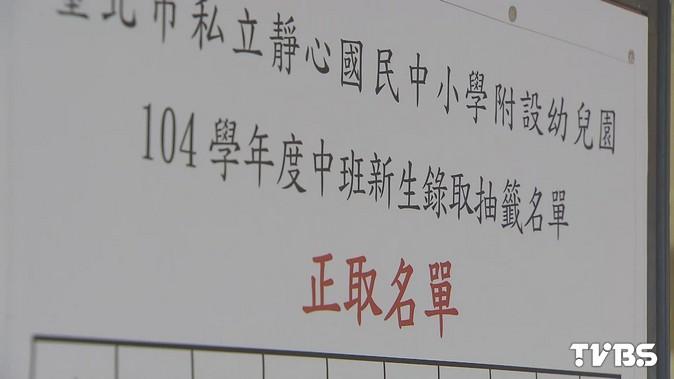 臺北市私立靜心國民中小學附設幼兒園
104學年度中班新生錄取抽籤名單
正取名單
TVBS